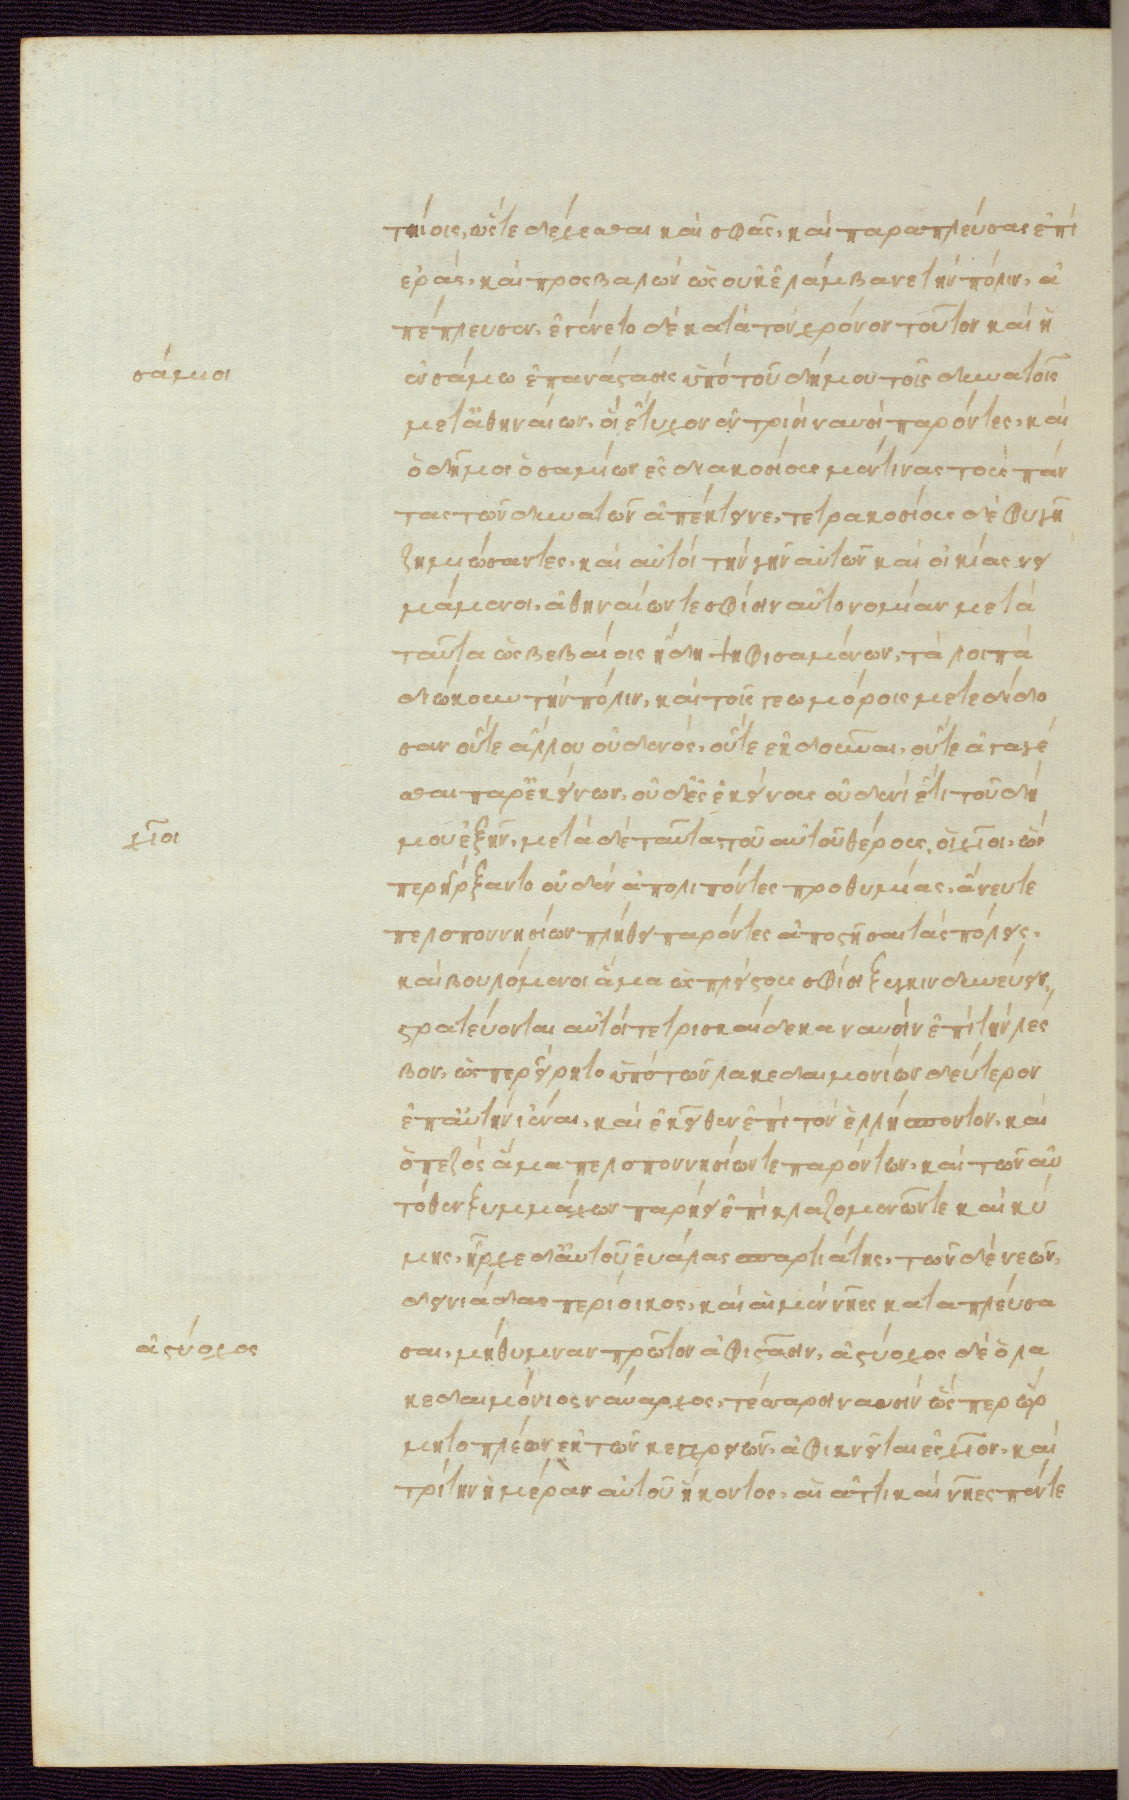 τηίοις, ὥστε δέχεσθαι καὶ σφᾶς, καὶ παραπλεύσας ἐπὶ
ἐράς, καὶ προσβαλὼν ὡς οὐκ ἐλάμβανε τὴν πόλιν, ἀ
πέπλευσεν, ἐγένετο δὲ κατὰ τὸν χρόνον τοῦτον καὶ ἡ
σάμιοι
ἐν σάμω ἐπανάστασις ὑπὸ τοῦ δήμου τοῖς δυνατοῖς
μετ ἀθηναίων, οἳ ἔτυχον ἐν τρισὶ ναυσὶ παρόντες, καὶ
ὁ δῆμος ὁ σαμίων ἐς διακοσίους μέν τινας τοὺς πάν
τας τῶν δυνατῶν ἀπέκτεινε, τετρακοσίους δὲ φυγῆ
ζημιώσαντες, καὶ αὐτοὶ τὴν γῆν αὐτῶν καὶ οἰκίας νει
μάμενοι, ἀθηναίων τε σφίσιν αὐτονομίαν μετὰ
ταῦτα ὡς βεβαίοις ἤδη ψηφισαμένων, τὰ λοιπὰ
διώκουν τὴν πόλιν, καὶ τοῖς γεωμόροις μετεδίδο
σαν οὔτε ἄλλου οὐδενός, οὔτε ἐκδοῦναι, οὔτε ἀγαγέ
σθαι παρ ἐκείνων, οὐδ ἐς ἐκείνους οὐδενὶ ἔτι τοῦ δή
χῖοι
μου ἐξῆν, μετὰ δὲ ταῦτα, τοῦ αὐτοῦ θέρους, οἱ χῖοι, ὥσ
περ ἤρξαντο οὐδὲν ἀπολιπόντες προθυμίας, ἄνευ τε
πελοποννησίων πλήθει παρόντες ἀποστῆσαι τὰς πόλεις,
καὶ βουλόμενοι ἅμα ὡς πλείστους σφίσι ξυγκινδυνεύειν,
στρατεύονται αὐτοί τε τρισκαίδεκα ναυσὶν ἐπὶ τὴν λέσ
βον, ὥσπερ εἴρητο ὑπὸ τῶν λακεδαιμονίων δεύτερον
ἐπ αὐτὴν ἰέναι, καὶ ἐκεῖθεν ἐπὶ τὸν ἑλλήσποντον, καὶ
ὁ πεζὸς ἅμα πελοποννησίων τε παρόντων, καὶ τῶν αὐ
τόθεν ξυμμάχων παρήει ἐπὶ κλαζομενῶν τε καὶ κύ
μης, ἦρχε δ αὐτοῦ εὐάλας σπαρτιάτης, τῶν δὲ νεῶν,
δεινιάδας περίοικος, καὶ αἱ μὲν νῆες καταπλεύσα
ἀστύοχος
σαι, μήθυμναν πρῶτον ἀφιστᾶσιν, ἀστύοχος δὲ ὁ λα
κεδαιμόνιος ναύαρχος, τέσσαρσι ναυσὶν ὥσπερ ὥρ
μητο πλέων ἐκ τῶν κεγχρειῶν, ἀφικνεῖται ἐς χῖον, καὶ
τρίτην ἡμέραν αὐτοῦ ἥκοντος, αἱ ἀττικαὶ νῆες πέντε